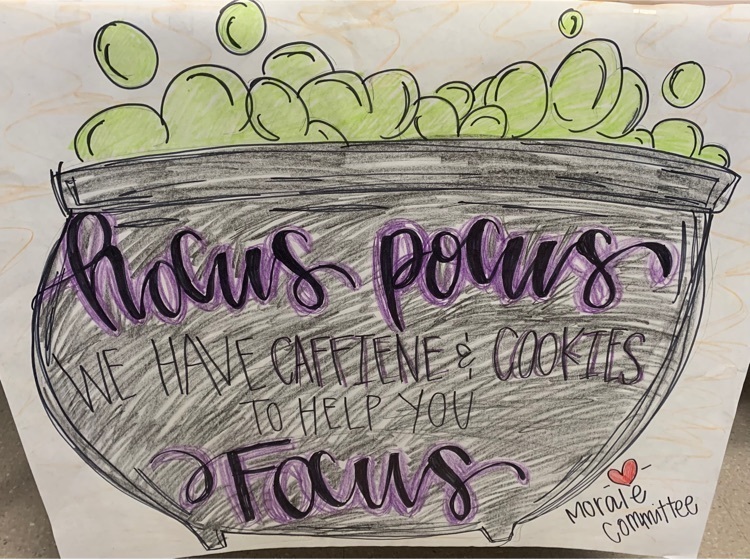 Hocus pocus
WE HAVE CAFFIENE & COOKIES
TO HELP YOU
Focus
Morale
Committee